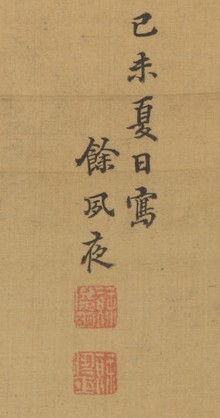 己未夏日寫
餘夙夜